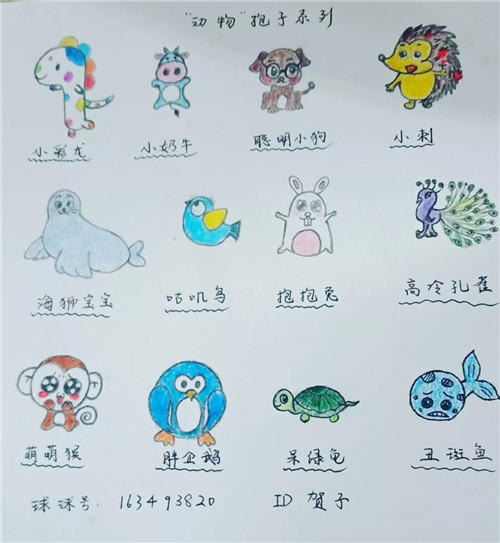 "动物"孢子系列
小彩龙 小奶牛 聪明小狗 小刺
海狮宝宝 咕叽鸟 抱抱兔 高冷孔雀
萌萌猴 胖企鹅 呆绿龟 丑斑鱼
球球号: 163493820 ID 贺子